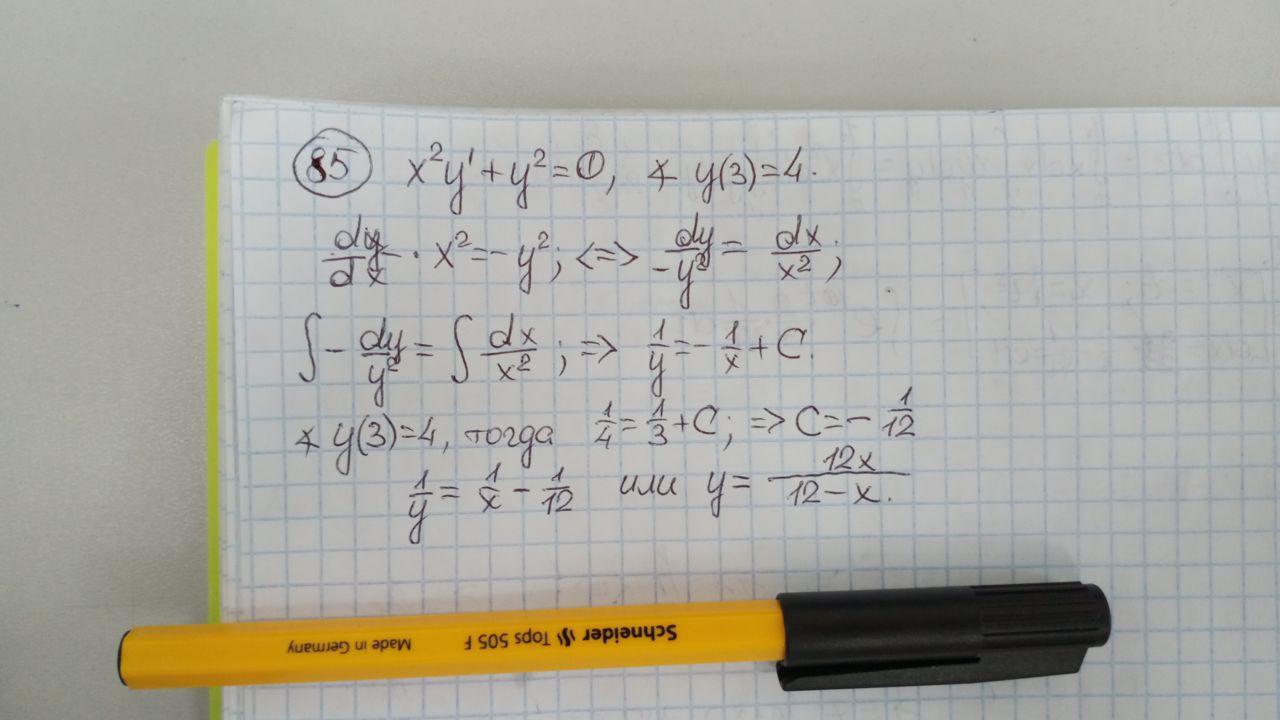 85 x²y' + y² = 0, ∡ y(3)=4.
dy/dx · x² = -y²; <=> dy/-y² = dx/x²;
∫ - dy/y² = ∫ dx/x²; => 1/y = - 1/x + C.
∡ y(3)=4, тогда 1/4 = 1/3 + C; => C = - 1/12
1/y = 1/x - 1/12 или y = 12x/12-x.
Schneider Tops 505 F Made in Germany